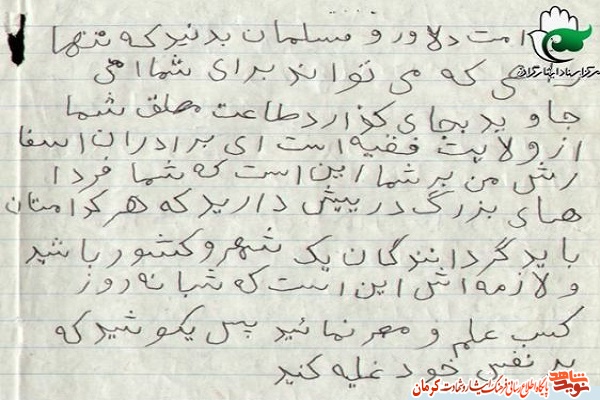 امت دلاور و مسلمان بدنید که تنها
که می تواند برای شما امی
جاوید بجای گذارد طاعت مطلق شما
از ولایت فقیه است ای برادران اسفا
رش من بر شما این است که شما فردا
های بزرگ در پیش دارید که هر کدامتان
باید گردانندگان یک شهر و کشور باشید
و لازمه اش این است که شبانه روز
کسب علم و نمائید پس بکوشید که
بر نفس خود غلبه کنید
مرکز اسناد ایثارگران
نوید شاهد
پایگاه اطلاع رسانی فرهنگ ایثار و شهادت کرمان